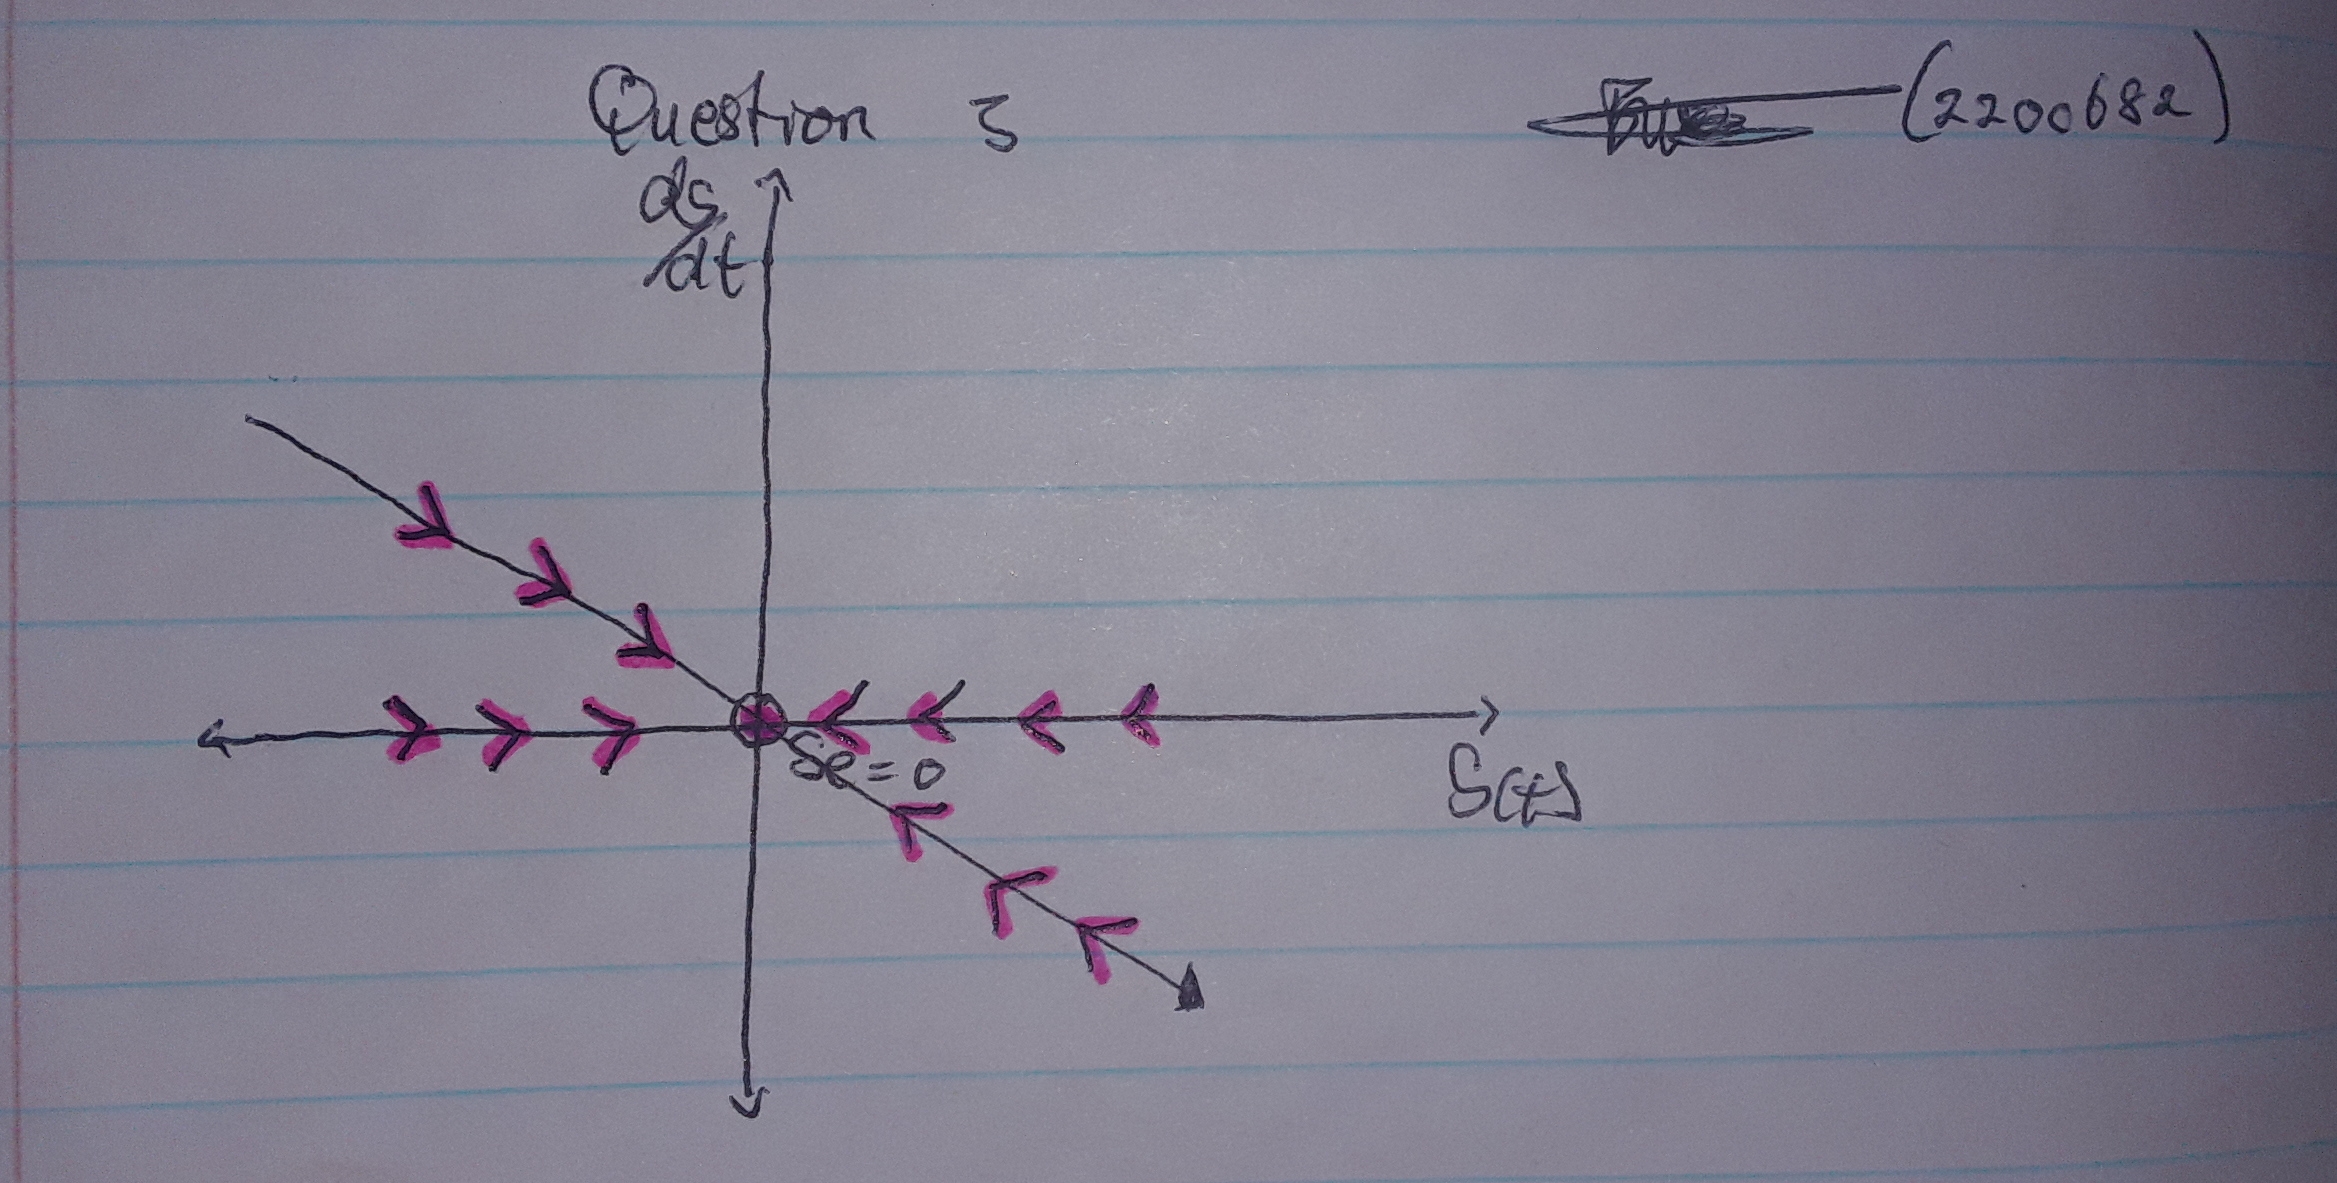 Question 3 (2200682)
ds/dt
Se=0
S(t)